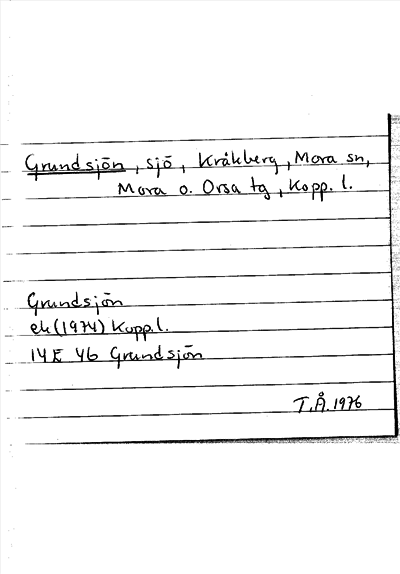 Grundsjön, sjö, Kråkberg, Mora sn,
Mora o. Orsa tg, Kopp. l.
Grundsjön
ek (1974) Kopp.l.
14E 4b Grundsjön
T.Å. 1976